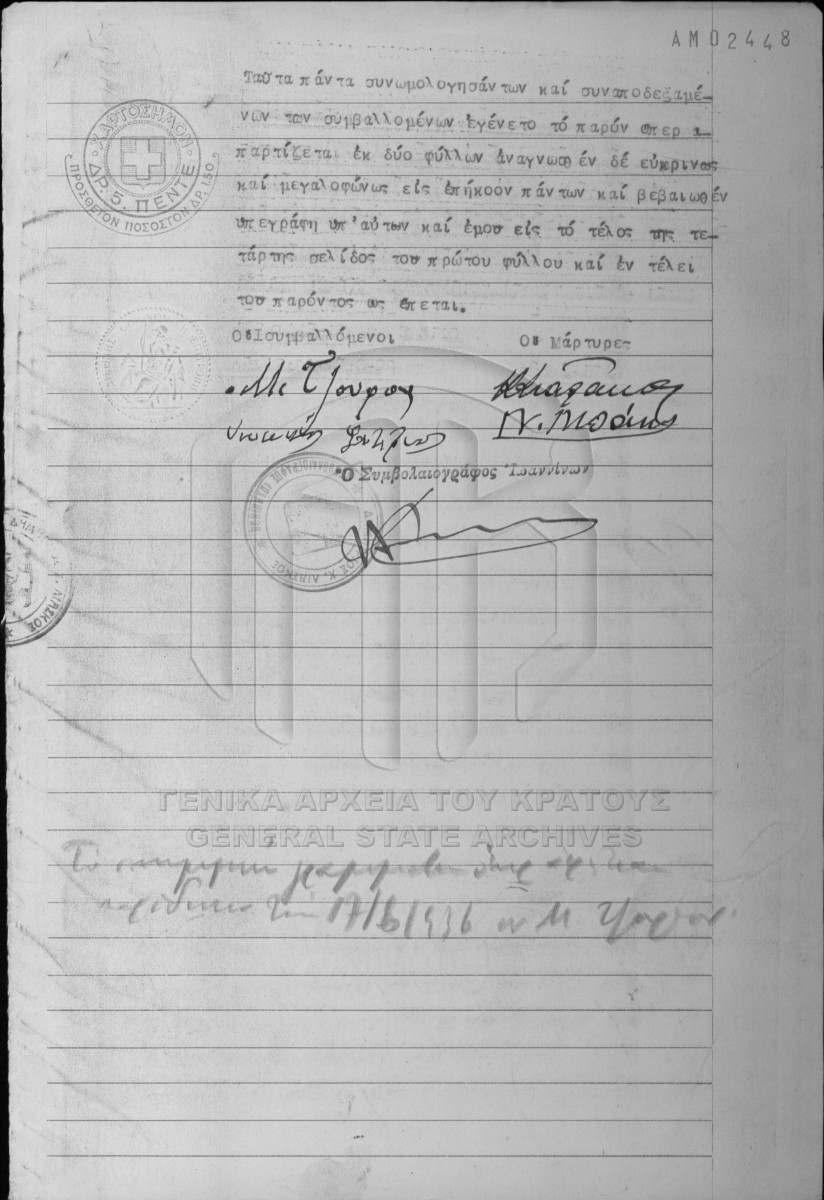 ΑΜ02448
Ταῦτα πάντα συνωμολογησάντων καί συναποδεξαμέ-
νων των συμβαλλομένων ἐγένετο τό παρόν ὅπερ α-
παρτίζεται ἐκ δύο φύλλων ἀναγνωσθέν δέ εὐκρινως
καί μεγαλοφώνως εἰς ἐπήκοον πάντων καί βεβαιωθέν
υπεγράφη υπ'αὐτων καί ἐμου εἰς τό τέλος της τε-
τάρτης σελίδος του πρώτου φύλλου καί ἐν τέλει
του παρόντος ως ἕπεται.
Οἱ Συμβαλλόμενοι
Οἱ Μάρτυρες
Μ. Τζουρος
Ν. Μπάκας
Ὁ Συμβολαιογράφος Ἰωαννίνων
ΧΑΡΤΟΣΗΜΟΝ
ΔΡ. 5. ΠΕΝΤΕ
ΠΡΟΣΘΕΤΟΝ ΠΟΣΟΣΤΟΝ ΔΡ. 1.50
Χ. ΛΙΑΣΚΟΣ
ΛΙΑΣΚΟΣ
ΓΕΝΙΚΑ ΑΡΧΕΙΑ ΤΟΥ ΚΡΑΤΟΥΣ
GENERAL STATE ARCHIVES
Το
την 17/6/936